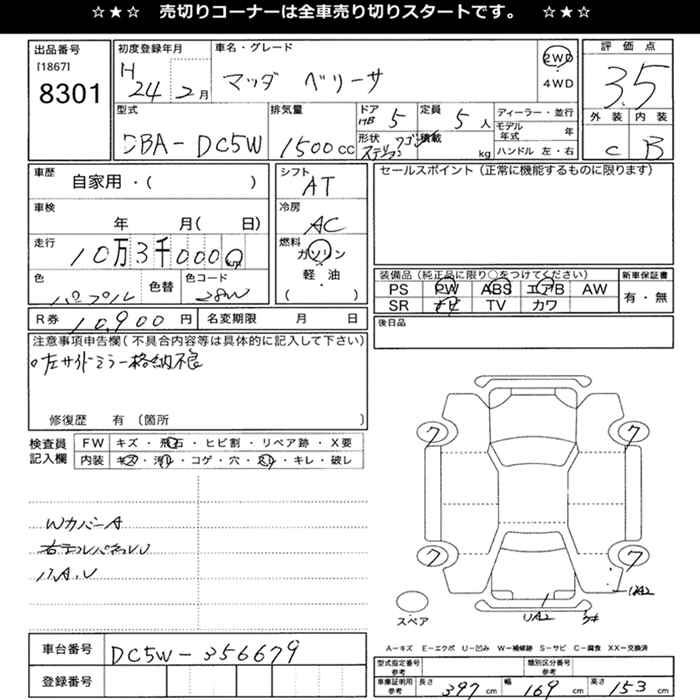 ☆★☆ 売切りコーナーは全車売り切りスタートです。 ☆★☆
出品番号
[1867]
8301
初度登録年月
H
24 2月
車名・グレード
マツダ ベリーサ
2WD
4WD
評価点
3.5
外装 内装
C B
型式
DBA-DC5W
排気量
1500cc
ドア
HB 5
定員
5人
形状
ステーションワゴン
積載
kg
ディーラー・並行
モデル年式 年
ハンドル 左・右
車歴
自家用・( )
車検
年 月( 日)
走行
10万3千000
色
パープル
色替
色コード
28W
シフト
AT
冷房
AC
燃料
ガソリン
軽・油
( )
セールスポイント(正常に機能するものに限ります)
装備品(純正品に限り○をつけてください)
PS PW ABS エアB AW
SR ナビ TV カワ
新車保証書
有・無
R券 10,900円
名変期限 月 日
後日品
注意事項申告欄(不具合内容等は具体的に記入して下さい)
左サイドミラー格納不良
修復歴 有 〔箇所 〕
検査員
記入欄
FW キズ・飛石・ヒビ割・リペア跡・X要
内装 キズ・汚れ・コゲ・穴・スレ・キレ・破レ
WカバーA
A.U
7 7
7 7
UA2
UA2
スペア
車台番号
DC5W-356679
登録番号
A－キズ E－エクボ U－凹み W－補修跡 S－サビ C－腐食 XX－交換済
型式指定番号
参考
類別区分番号
参考
車庫証明用
参考
長さ 397cm
幅 169cm
高さ 153cm